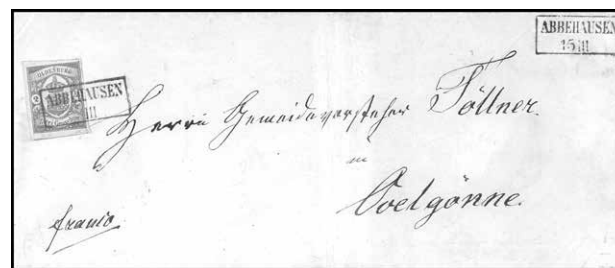 ABBEHAUSEN
15 III
OLDENBURG
ABBEHAUSEN
III
Herrn Gemeindevorsteher Töllner.
in
Ovelgönne.
franco